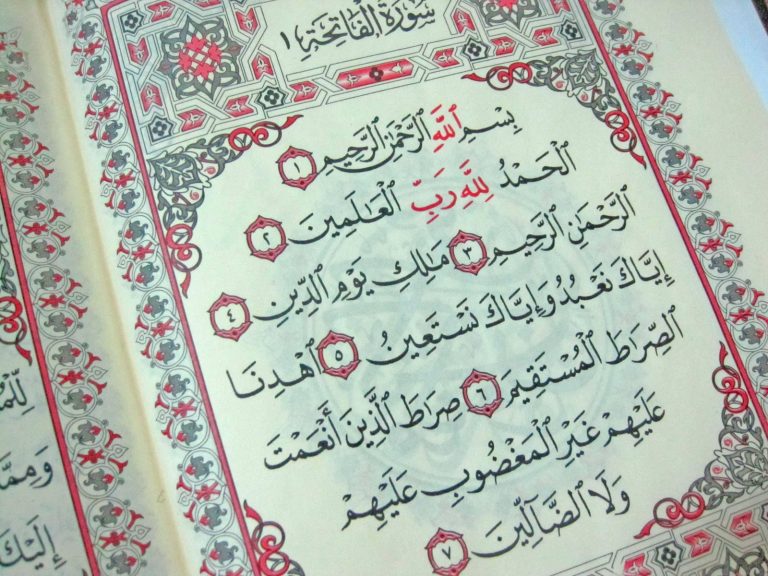 سُورَةُ الْفَاتِحَةِ ١
بِسْمِ ٱللَّهِ ٱلرَّحْمَٰنِ ٱلرَّحِيمِ ١
ٱلْحَمْدُ لِلَّهِ رَبِّ ٱلْعَٰلَمِينَ ٢
ٱلرَّحْمَٰنِ ٱلرَّحِيمِ ٣ مَٰلِكِ يَوْمِ ٱلدِّينِ ٤
إِيَّاكَ نَعْبُدُ وَإِيَّاكَ نَسْتَعِينُ ٥ ٱهْدِنَا
ٱلصِّرَاطَ ٱلْمُسْتَقِيمَ ٦ صِرَاطَ ٱلَّذِينَ أَنْعَمْتَ
عَلَيْهِمْ غَيْرِ ٱلْمَغْضُوبِ عَلَيْهِمْ
وَلَا ٱلضَّآلِّينَ ٧
إِلَيْكَ